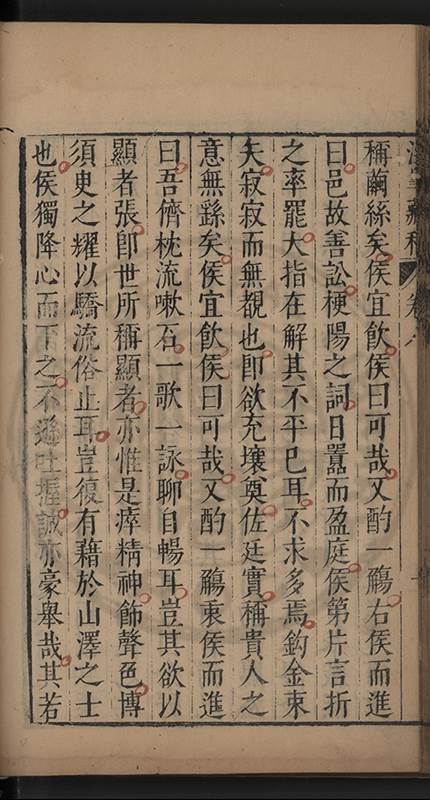 稱繭絲矣侯宜飲侯曰可哉又酌一觴右侯而進
曰邑故善訟梗陽之詞日囂而盈庭侯第片言折
之率罷大指在解其不平已耳不求多焉鈎金束
矢寂寂而無覩也卽欲充壤奠佐廷實稱貴人之
意無繇矣侯宜飲侯曰可哉又酌一觴衷侯而進
曰吾儕枕流嗽石一歌一詠聊自暢耳豈其欲以
顯者張卽世所稱顯者亦惟是瘁精神飾聲色博
須臾之耀以驕流俗止耳豈復有藉於山澤之士
也侯獨降心而下之不遜吐握誠亦豪舉哉其若